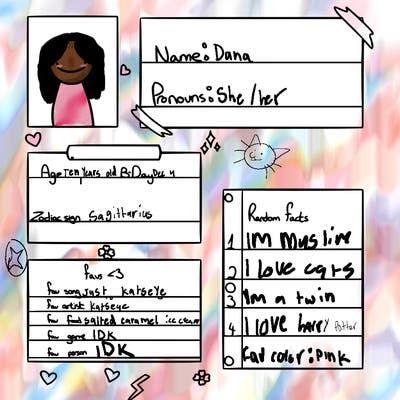 Name: Dana
Pronouns: She/her
Age Ten years old BirDay Dec 4
Zodiac sign Sagittarius
favs <3
fav song just katseye
fav artist katseye
fav food salted caramel ice cream
fav game IDK
fav person IDK
Random facts
1 Im muslim
2 I Love cats
3 Im a twin
4 I love harry Potter
fav color: pink